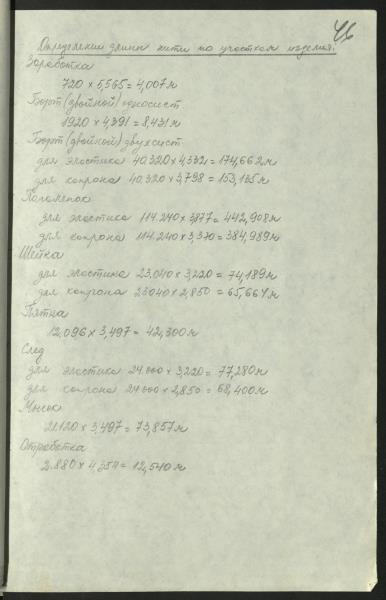 46
Определение длины нити по участкам изделия.
Заработка
720 × 5,565 = 4,007м
Борт (двойной) односист
1920 × 4,391 = 8,431м
Борт (двойной) двухсист
для эластика 40.320 × 4,332 = 174,662м
для капрона 40.320 × 3,798 = 153,135м
Паголенок
для эластика 114.240 × 3877 = 442,908м
для капрона 114.240 × 3,370 = 384,989м
Шейка
для эластика 23.040 × 3,220 = 74,189м
для капрона 23040 × 2,850 = 65,664м
Пятка
12.096 × 3,497 = 42,300м
След
для эластика 24.000 × 3,220 = 77,280м
для капрона 24.000 × 2,850 = 68,400м
Мысок
21.120 × 3,497 = 73,857м
Отработка
2.880 × 4,354 = 12,540м